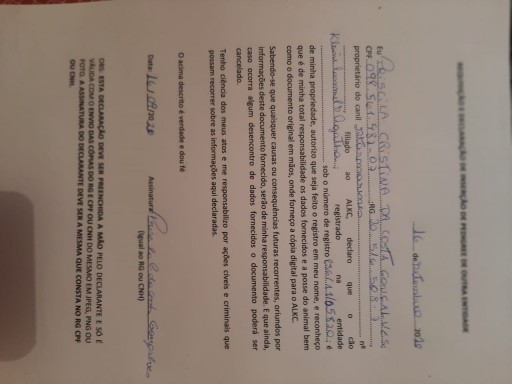 REQUISIÇÃO E DECLARAÇÃO DE INSERÇÃO DE PEDIGREE DE OUTRA ENTIDADE
16 de setembro 2020
Eu PRISCILA CRISTINA DA COSTA GONÇALVES
CPF RG
proprietário do canil nº
filiado ao ALKC, declaro que o cão
registrado na entidade
sob o número de registro é
de minha propriedade, autorizo que seja feito o registro em meu nome, e reconheço
que é de minha total responsabilidade os dados fornecidos e a posse do animal bem
como o documento original em mãos, onde forneço a cópia digital para o ALKC.
Sabendo-se que quaisquer causas ou consequências futuras recorrentes, oriundos por
informações deste documento fornecido, serão de minha responsabilidade. E que ainda,
caso ocorra algum desencontro de dados fornecidos o documento poderá ser
cancelado.
Tenho ciência dos meus atos e me responsabilizo por ações cíveis e criminais que
possam recorrer sobre as informações aqui declaradas.
O acima descrito é verdade e dou fé
Data: 16/09/2020 Assinatura
(Igual ao RG ou CNH)
OBS: ESTA DECLARAÇÃO DEVE SER PREENCHIDA A MÃO PELO DECLARANTE E SÓ É
VÁLIDA COM O ENVIO DAS CÓPIAS DO RG E CPF OU CNH DO MESMO EM JPEG, PNG OU
FOTO. A ASSINATURA DO DECLARANTE DEVE SER A MESMA QUE CONSTA NO RG CPF
OU CNH.